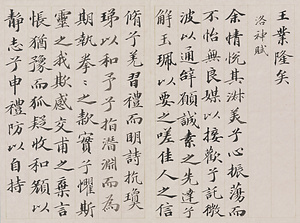 王業隆矣
洛神賦
余情悅其淑美兮心振蕩而
不怡無良媒以接歡兮託微
波以通辭願誠素之先達兮
解玉珮以要之嗟佳人之信
脩兮羌習禮而明詩抗瓊
珶以和予兮指潛淵而為
期執拳〻之款實兮懼斯
靈之我欺感交甫之棄言
悵猶豫而狐疑收和顏以
靜志兮申禮防以自持